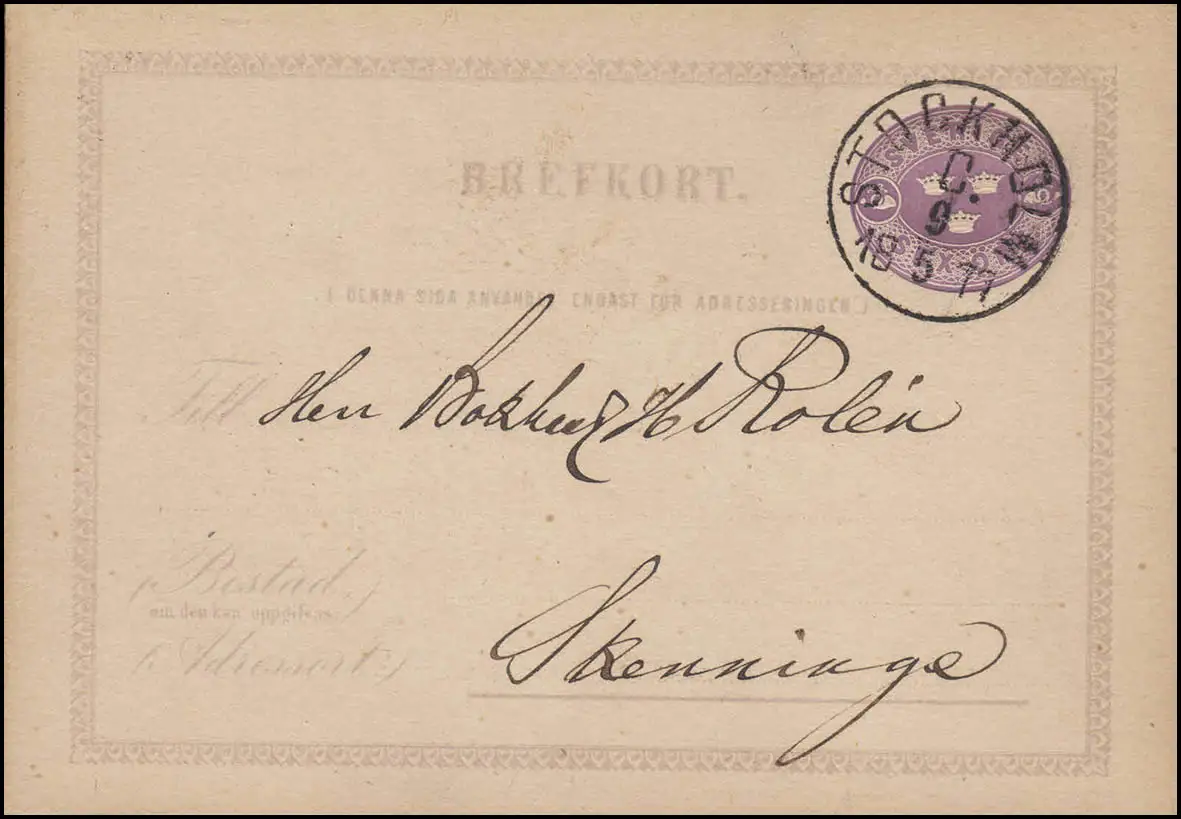 BREFKORT.
STOCKHOLM
C.
9
18 5 77
SVERIGE
SEX ÖRE
( DENNA SIDA ANVÄNDES ENDAST FÖR ADRESSERINGEN.)
Till Herr Bokh H Rolén
(Bostad,)
om den kan uppgifvas.
(Adressort:)
Skenninge